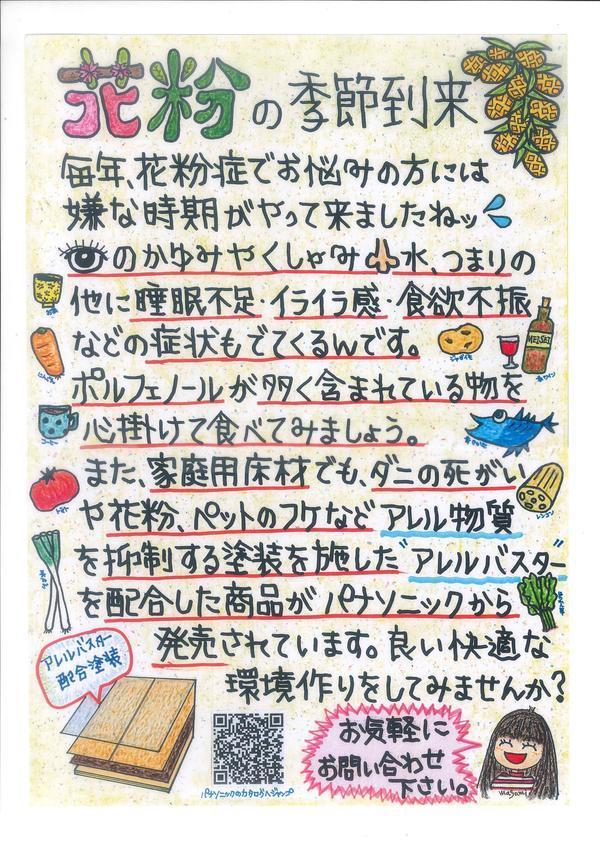 花粉の季節到来
毎年、花粉症でお悩みの方には
嫌な時期がやって来ましたねッ
のかゆみやくしゃみ 水、つまりの
他に睡眠不足・イライラ感・食欲不振
などの症状もでてくるんです。
ポルフェノールが多く含まれている物を
心掛けて食べてみましょう。
また、家庭用床材でも、ダニの死がい
や花粉、ペットのフケなどアレル物質
を抑制する塗装を施した"アレルバスター"
を配合した商品がパナソニックから
発売されています。良い快適な
環境作りをしてみませんか?
お茶
にんじん
コーヒー
トマト
ジャガイモ
MEISEI
赤ワイン
レンコン
アレルバスター
配合塗装
パナソニックのカタログへジャンプ
お気軽に
お問い合わせ
下さい。
masami